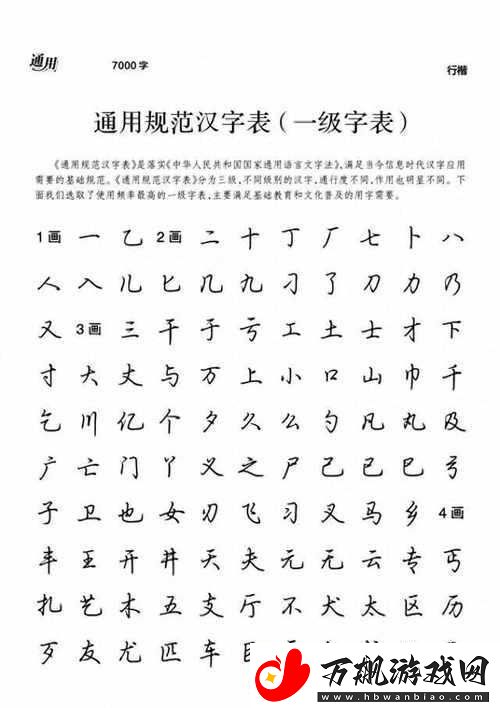 通用 7000 字 行楷
通用规范汉字表（一级字表）
《通用规范汉字表》是落实《中华人民共和国国家通用语言文字法》，满足当今信息时代汉字应用
需要的基础规范。《通用规范汉字表》分为三级，不同级别的汉字，通行度不同，作用也明显不同。下
面我们选取了使用频率最高的一级字表，主要满足基础教育和文化普及的用字需要。
1画 一 乙 2画 二 十 丁 厂 七 卜 八
人 入 儿 匕 几 九 刁 了 刀 力 乃
又 3画 三 干 于 亏 工 土 士 才 下
寸 大 丈 与 万 上 小 口 山 巾 千
乞 川 亿 个 夕 久 么 勺 凡 丸 及
广 亡 门 丫 义 之 尸 己 已 巳 弓
子 卫 也 女 刃 飞 习 叉 马 乡 4画
丰 王 开 井 天 夫 元 无 云 专 丐
扎 艺 木 五 支 厅 不 犬 太 区 历
歹 友 尤 匹 车
万飙游戏网
www.hbwanbiao.com